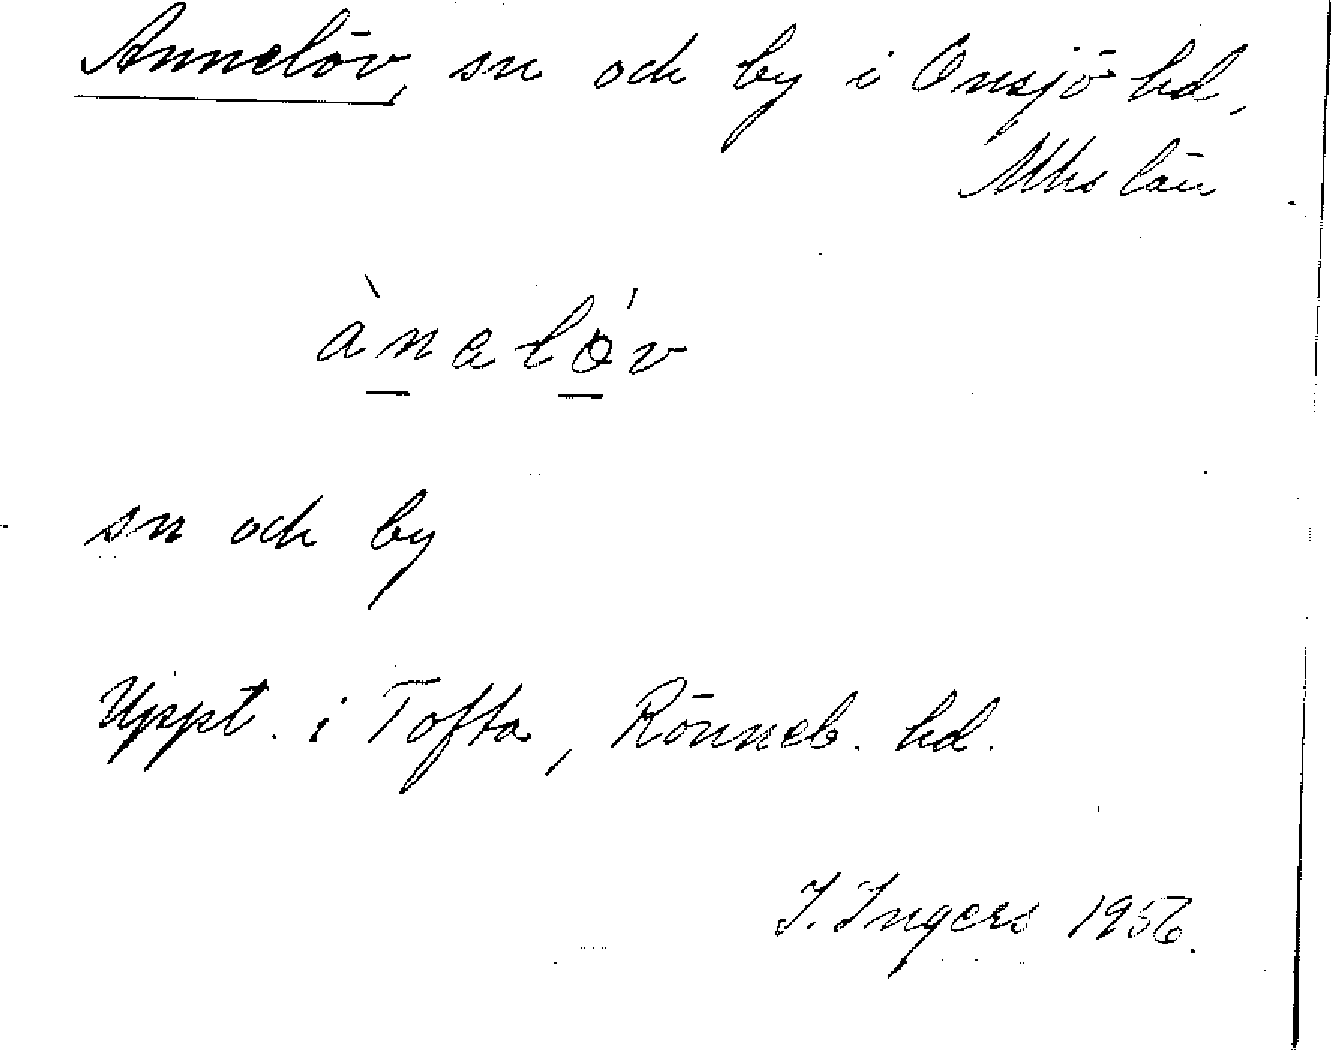 Annelöv, sn och by i Onsjö hd,
Mhs län
ànaløv
sn och by
Uppt. i Tofta, Rönneb. hd.
I. Ingers 1956.